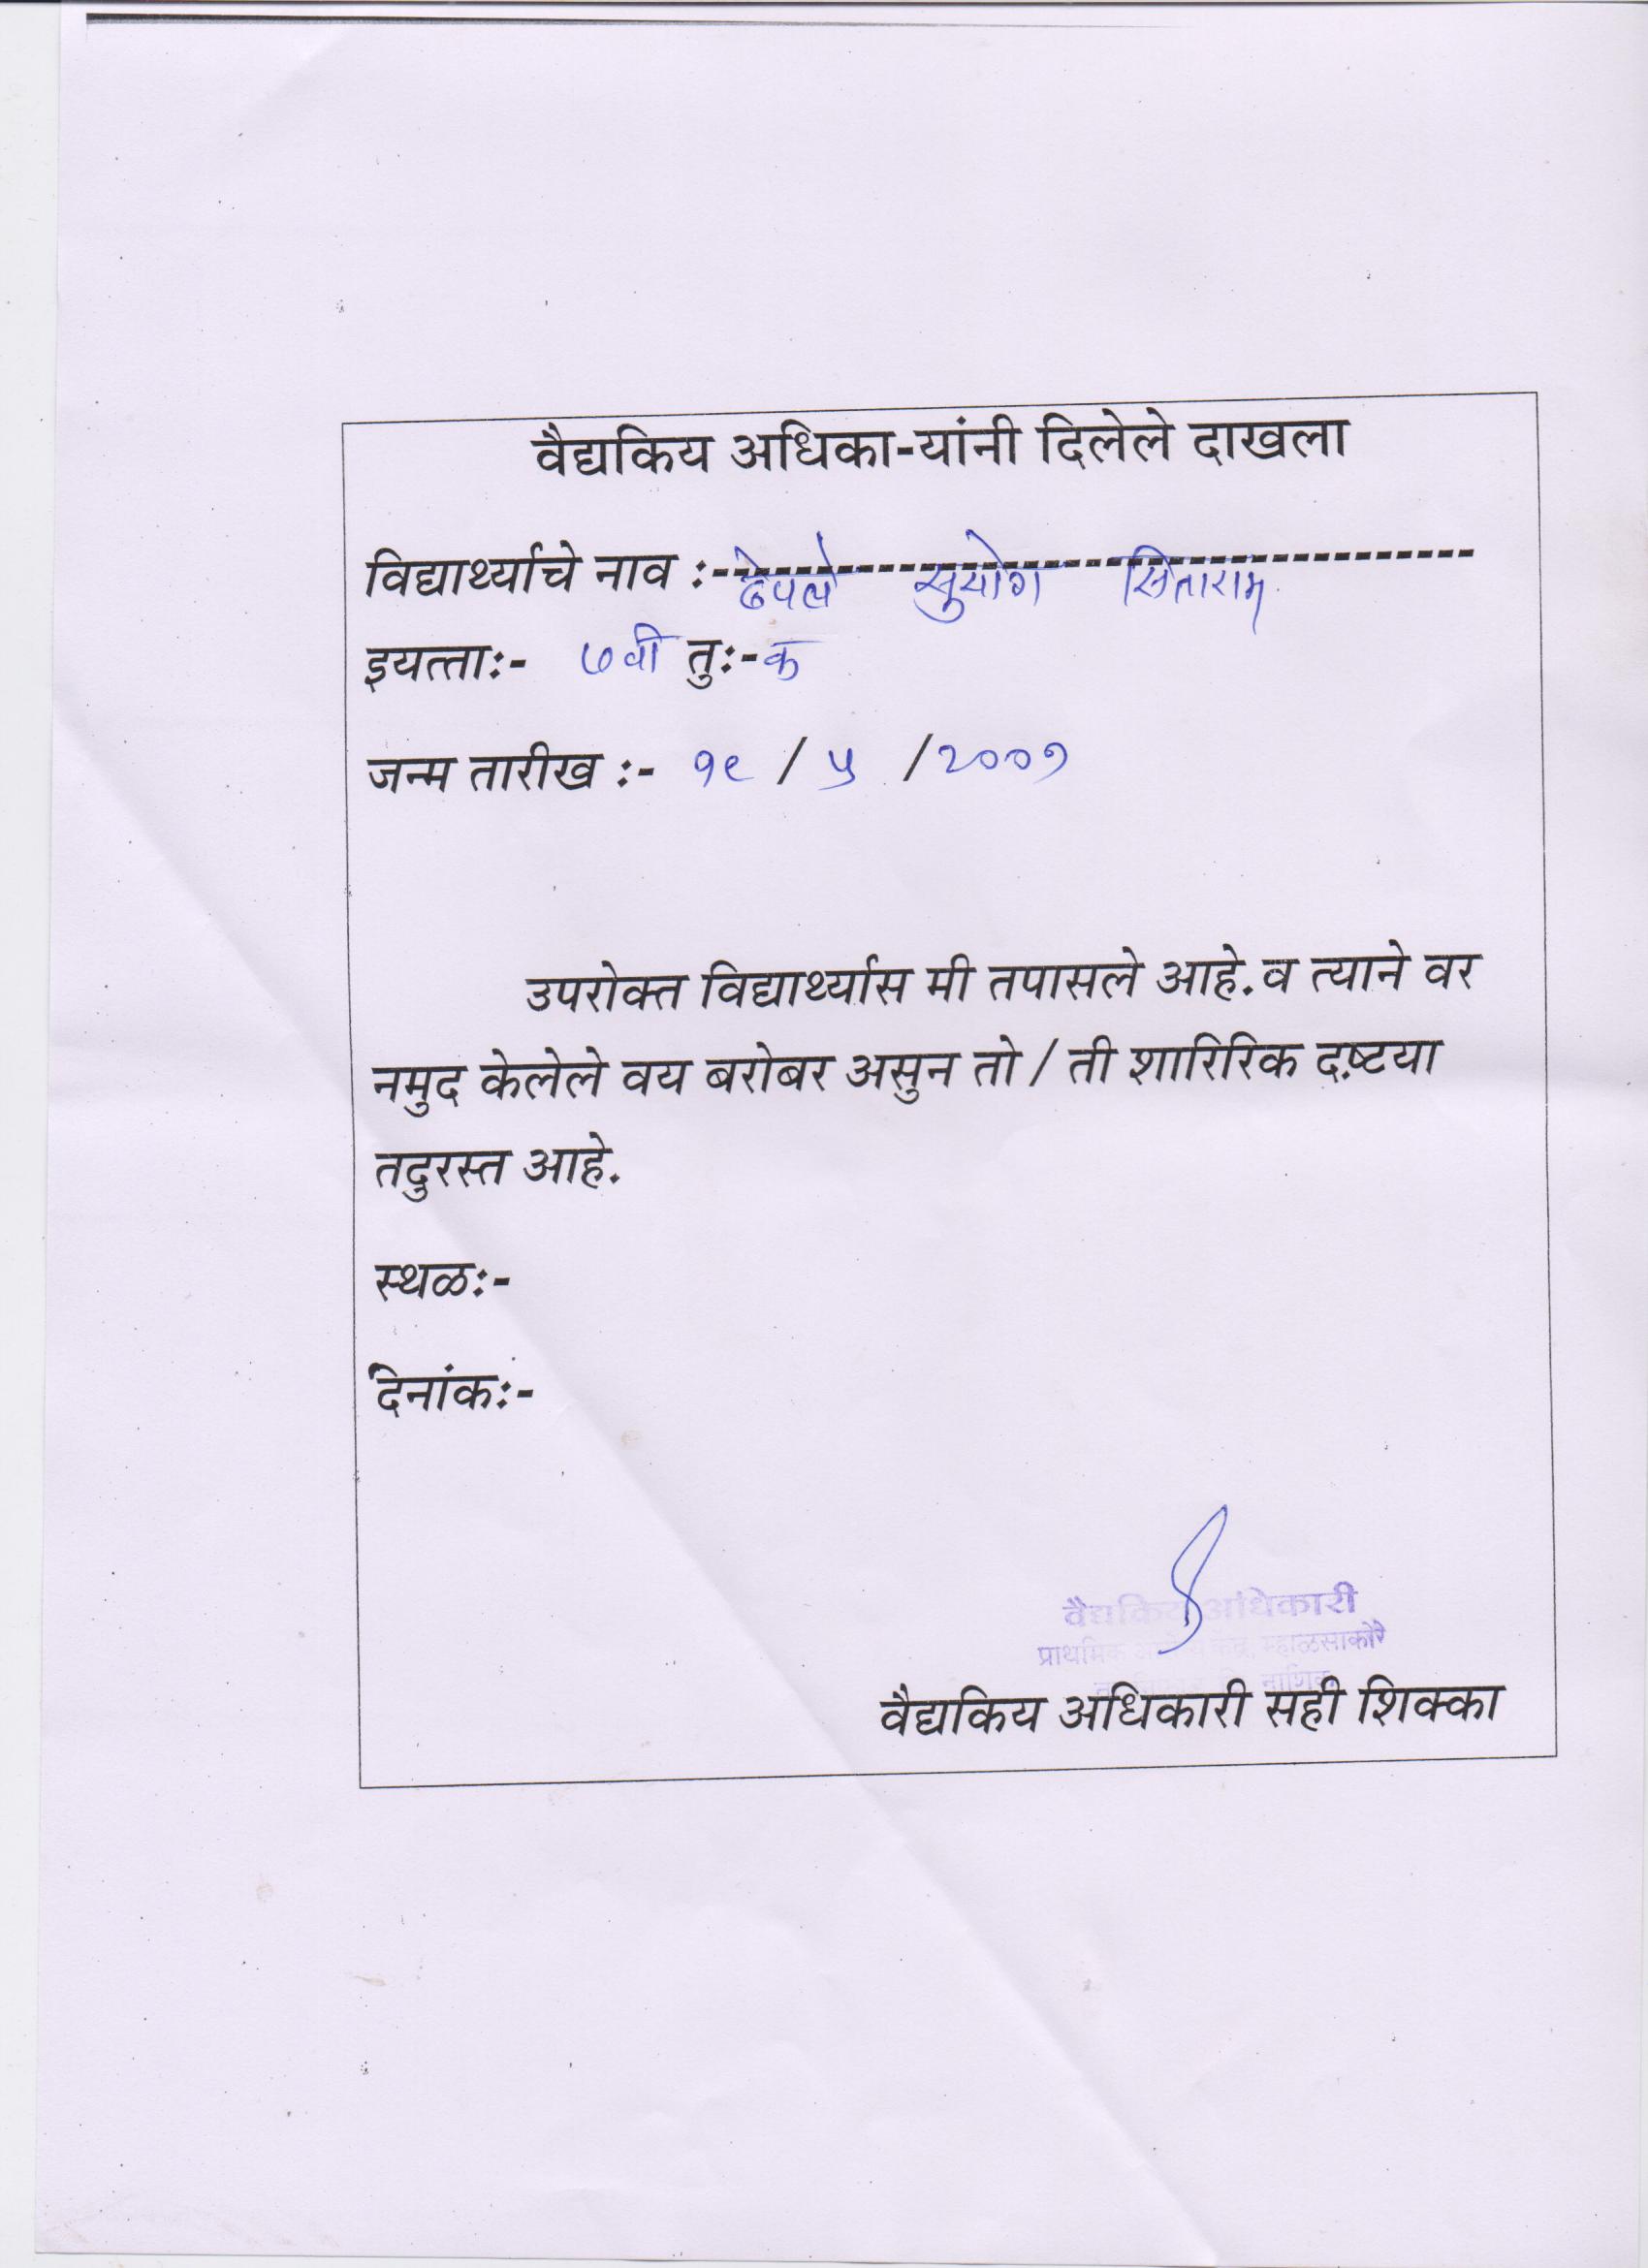 वैद्यकिय अधिका-यांनी दिलेले दाखला
विद्यार्थ्याचे नाव :-------------------------------------
ढेपले सुयोग सिताराम
इयत्ताः- ७वी तुः-क
जन्म तारीख :- १९ / ५ /२००१
उपरोक्त विद्यार्थ्यास मी तपासले आहे.व त्याने वर
नमुद केलेले वय बरोबर असुन तो / ती शारिरिक दष़्टया
तदुरस्त आहे.
स्थळः-
दिनांकः-
वैद्यकिय अधिकारी
प्राथमिक आरोग्य केंद्र, म्हाळसाकोरे
नाशिक
वैद्यकिय अधिकारी सही शिक्का